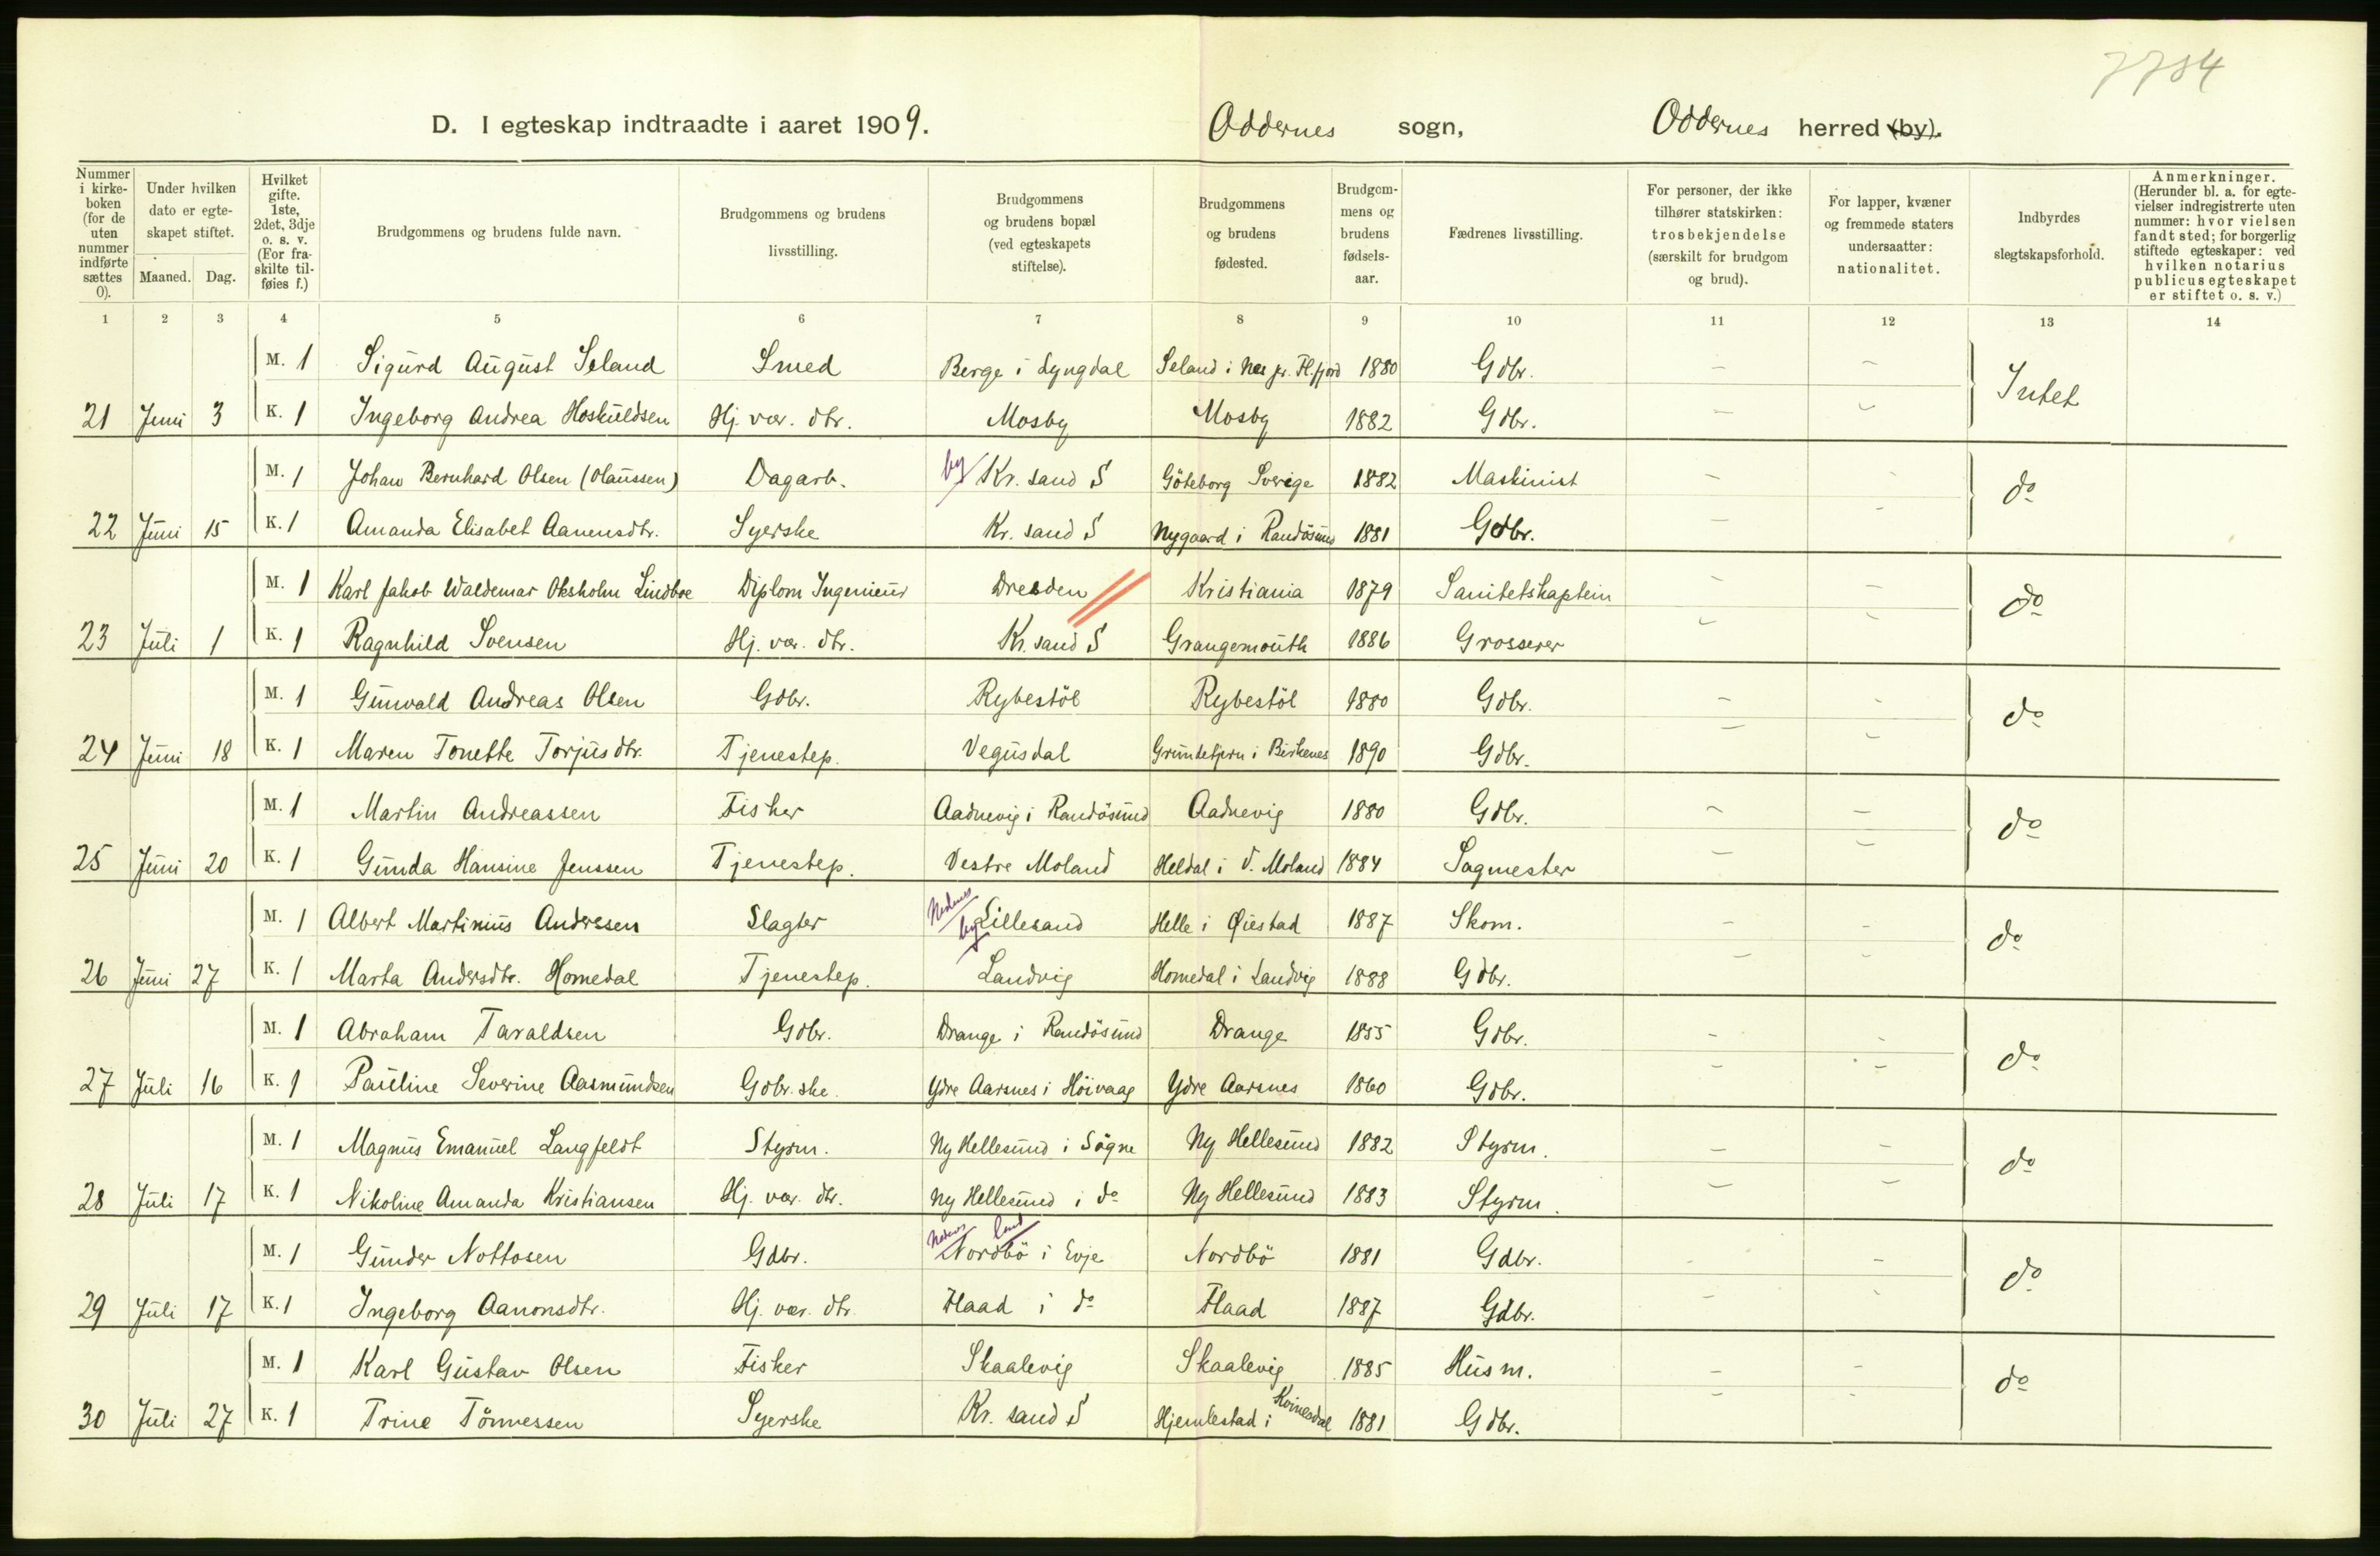 7784
D. I egteskap indtraadte i aaret 1909. Oddernes sogn, Oddernes herred (by).
Nummer i kirke-boken (for de uten nummer indførte sættes 0).
Under hvilken dato er egte-skapet stiftet.
Maaned. Dag.
Hvilket gifte. 1ste, 2det, 3dje o. s. v. (For fra-skilte til-føies f.)
Brudgommens og brudens fulde navn.
Brudgommens og brudens livsstilling.
Brudgommens og brudens bopæl (ved egteskapets stiftelse).
Brudgommens og brudens fødested.
Brudgom-mens og brudens fødsels-aar.
Fædrenes livsstilling.
For personer, der ikke tilhører statskirken: trosbekjendelse (særskilt for brudgom og brud).
For lapper, kvæner og fremmede staters undersaatter: nationalitet.
Indbyrdes slegtskapsforhold.
Anmerkninger. (Herunder bl. a. for egte-vielser indregistrerte uten nummer: hvor vielsen fandt sted; for borgerlig stiftede egteskaper: ved hvilken notarius publicus egteskapet er stiftet o. s. v.)
1 2 3 4 5 6 7 8 9 10 11 12 13 14
M. 1 Sigurd August Seland Smed Berge i Lyngdal Seland i Nes pr. Fl.fjord 1880 Gdbr. Intet
21 Juni 3 K. 1 Ingeborg Andrea Hoskuldsen Hj. vær. dtr. Mosby Mosby 1882 Gdbr.
M. 1 Johan Bernhard Olsen (Olaussen) Dagarb. by Kr. sand S Göteborg Sverige 1882 Maskinist do
22 Juni 15 K. 1 Amanda Elisabet Aanensdtr. Syerske Kr. sand S Nygaard i Randösund 1881 Gdbr.
M. 1 Karl Jakob Waldemar Oksholm Lindboe Diplom Ingenieur Dresden Kristiania 1879 Sanitetskaptein do
23 Juli 1 K. 1 Ragnhild Svensen Hj. vær. dtr. Kr. sand S Grangemouth 1886 Grosserer
M. 1 Gunvald Andreas Olsen Gdbr. Rybestöl Rybestöl 1880 Gdbr. do
24 Juni 18 K. 1 Maren Tonette Torjusdtr. Tjenestep. Vegusdal Gruntetjern i Birkenes 1890 Gdbr.
M. 1 Martin Andreassen Fisker Aadnevig i Randösund Aadnevig 1880 Gdbr. do
25 Juni 20 K. 1 Gunda Hansine Jenssen Tjenestep. Vestre Moland Heldal i V. Moland 1884 Sagmester
M. 1 Albert Martinius Anderssen Slagter Nedenes by Lillesand Helle i Øiestad 1887 Skom. do
26 Juni 27 K. 1 Marta Andersdtr. Homedal Tjenestep. Landvig Homedal i Landvig 1888 Gdbr.
M. 1 Abraham Taraldsen Gdbr. Drange i Randösund Drange 1855 Gdbr. do
27 Juli 16 K. 1 Pauline Severine Aasmundsen Gdbr.ske. Ydre Aarsnes i Höivaag Ydre Aarsnes 1860 Gdbr.
M. 1 Magnus Emanuel Langfeldt Styrm. Ny Hellesund i Sögne Ny Hellesund 1882 Styrm. do
28 Juli 17 K. 1 Nikoline Amanda Kristiansen Hj. vær. dtr. Ny Hellesund i do Ny Hellesund 1883 Styrm.
M. 1 Gunder Nottosen Gdbr. Nedenes land Nordbö i Evje Nordbö 1881 Gdbr. do
29 Juli 17 K. 1 Ingeborg Aanonsdtr. Hj. vær. dtr. Flaad i do Flaad 1887 Gdbr.
M. 1 Karl Gustav Olsen Fisker Skaalevig Skaalevig 1885 Husm. do
30 Juli 27 K. 1 Trine Tönnessen Syerske Kr. sand S Hjemlestad i Kvinesdal 1881 Gdbr.